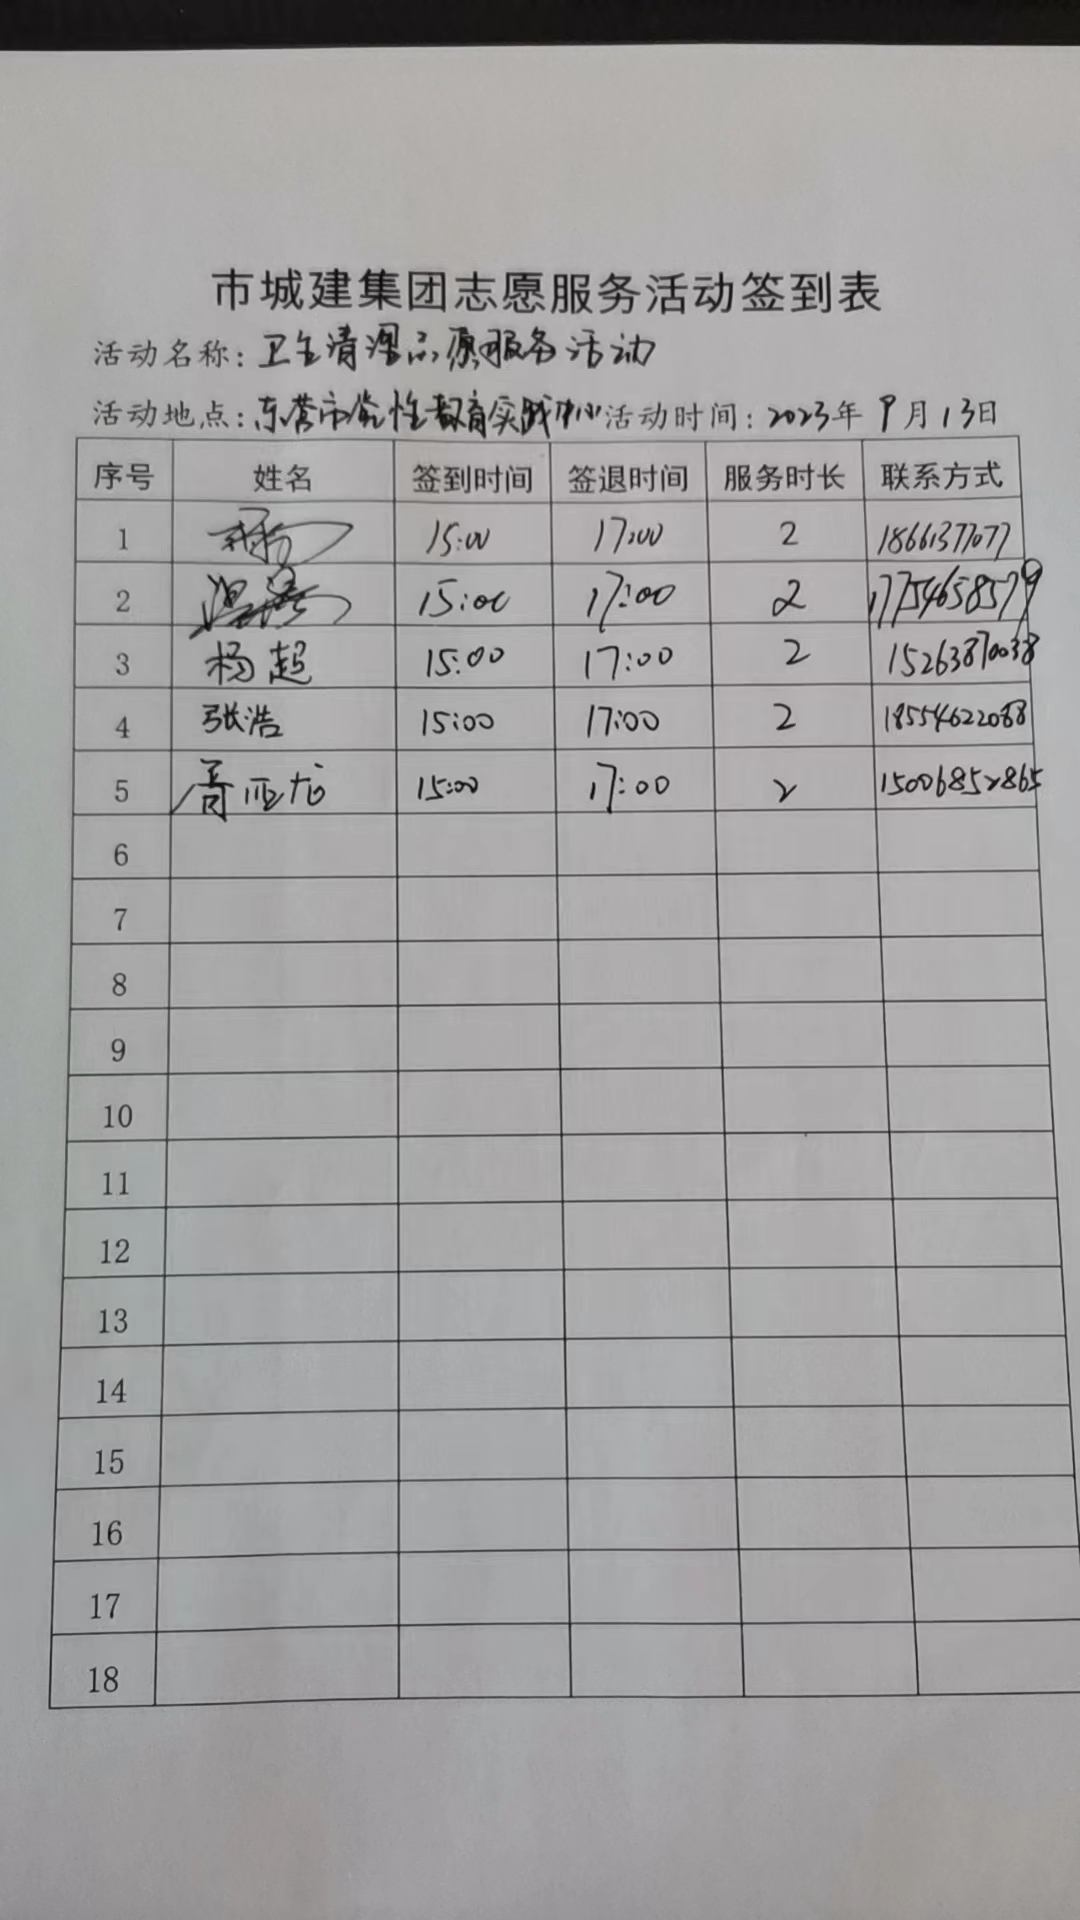 市城建集团志愿服务活动签到表
活动名称：卫生清理志愿服务活动
活动地点：东营市党性教育实践中心 活动时间：2023年9月13日
序号 姓名 签到时间 签退时间 服务时长 联系方式
1 15:00 17:00 2 18661377077
2 15:00 17:00 2 17754658579
3 杨超 15:00 17:00 2 15263870038
4 张浩 15:00 17:00 2 18554622088
5 胥亚龙 15:00 17:00 2 15006852865
6
7
8
9
10
11
12
13
14
15
16
17
18